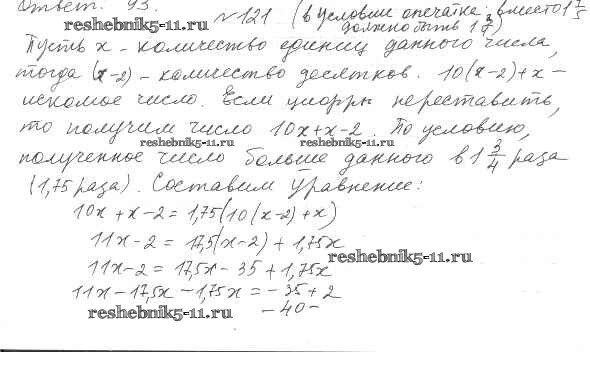 Ответ. 93.
reshebnik5-11.ru
№ 121 (в условии опечатка: вместо 1 7/5
должно быть 1 3/4)
Пусть x – количество единиц данного числа,
тогда (x-2) – количество десятков. 10(x-2)+x –
искомое число. Если цифры переставить,
то получим число 10x+x-2. По условию,
reshebnik5-11.ru reshebnik5-11.ru
полученное число больше данного в 1 3/4 раза
(1,75 раза). Составим уравнение:
10x+x-2=1,75(10(x-2)+x)
11x-2=17,5(x-2)+1,75x
reshebnik5-11.ru
11x-2=17,5x-35+1,75x
11x-17,5x-1,75x=-35+2
reshebnik5-11.ru
-40-